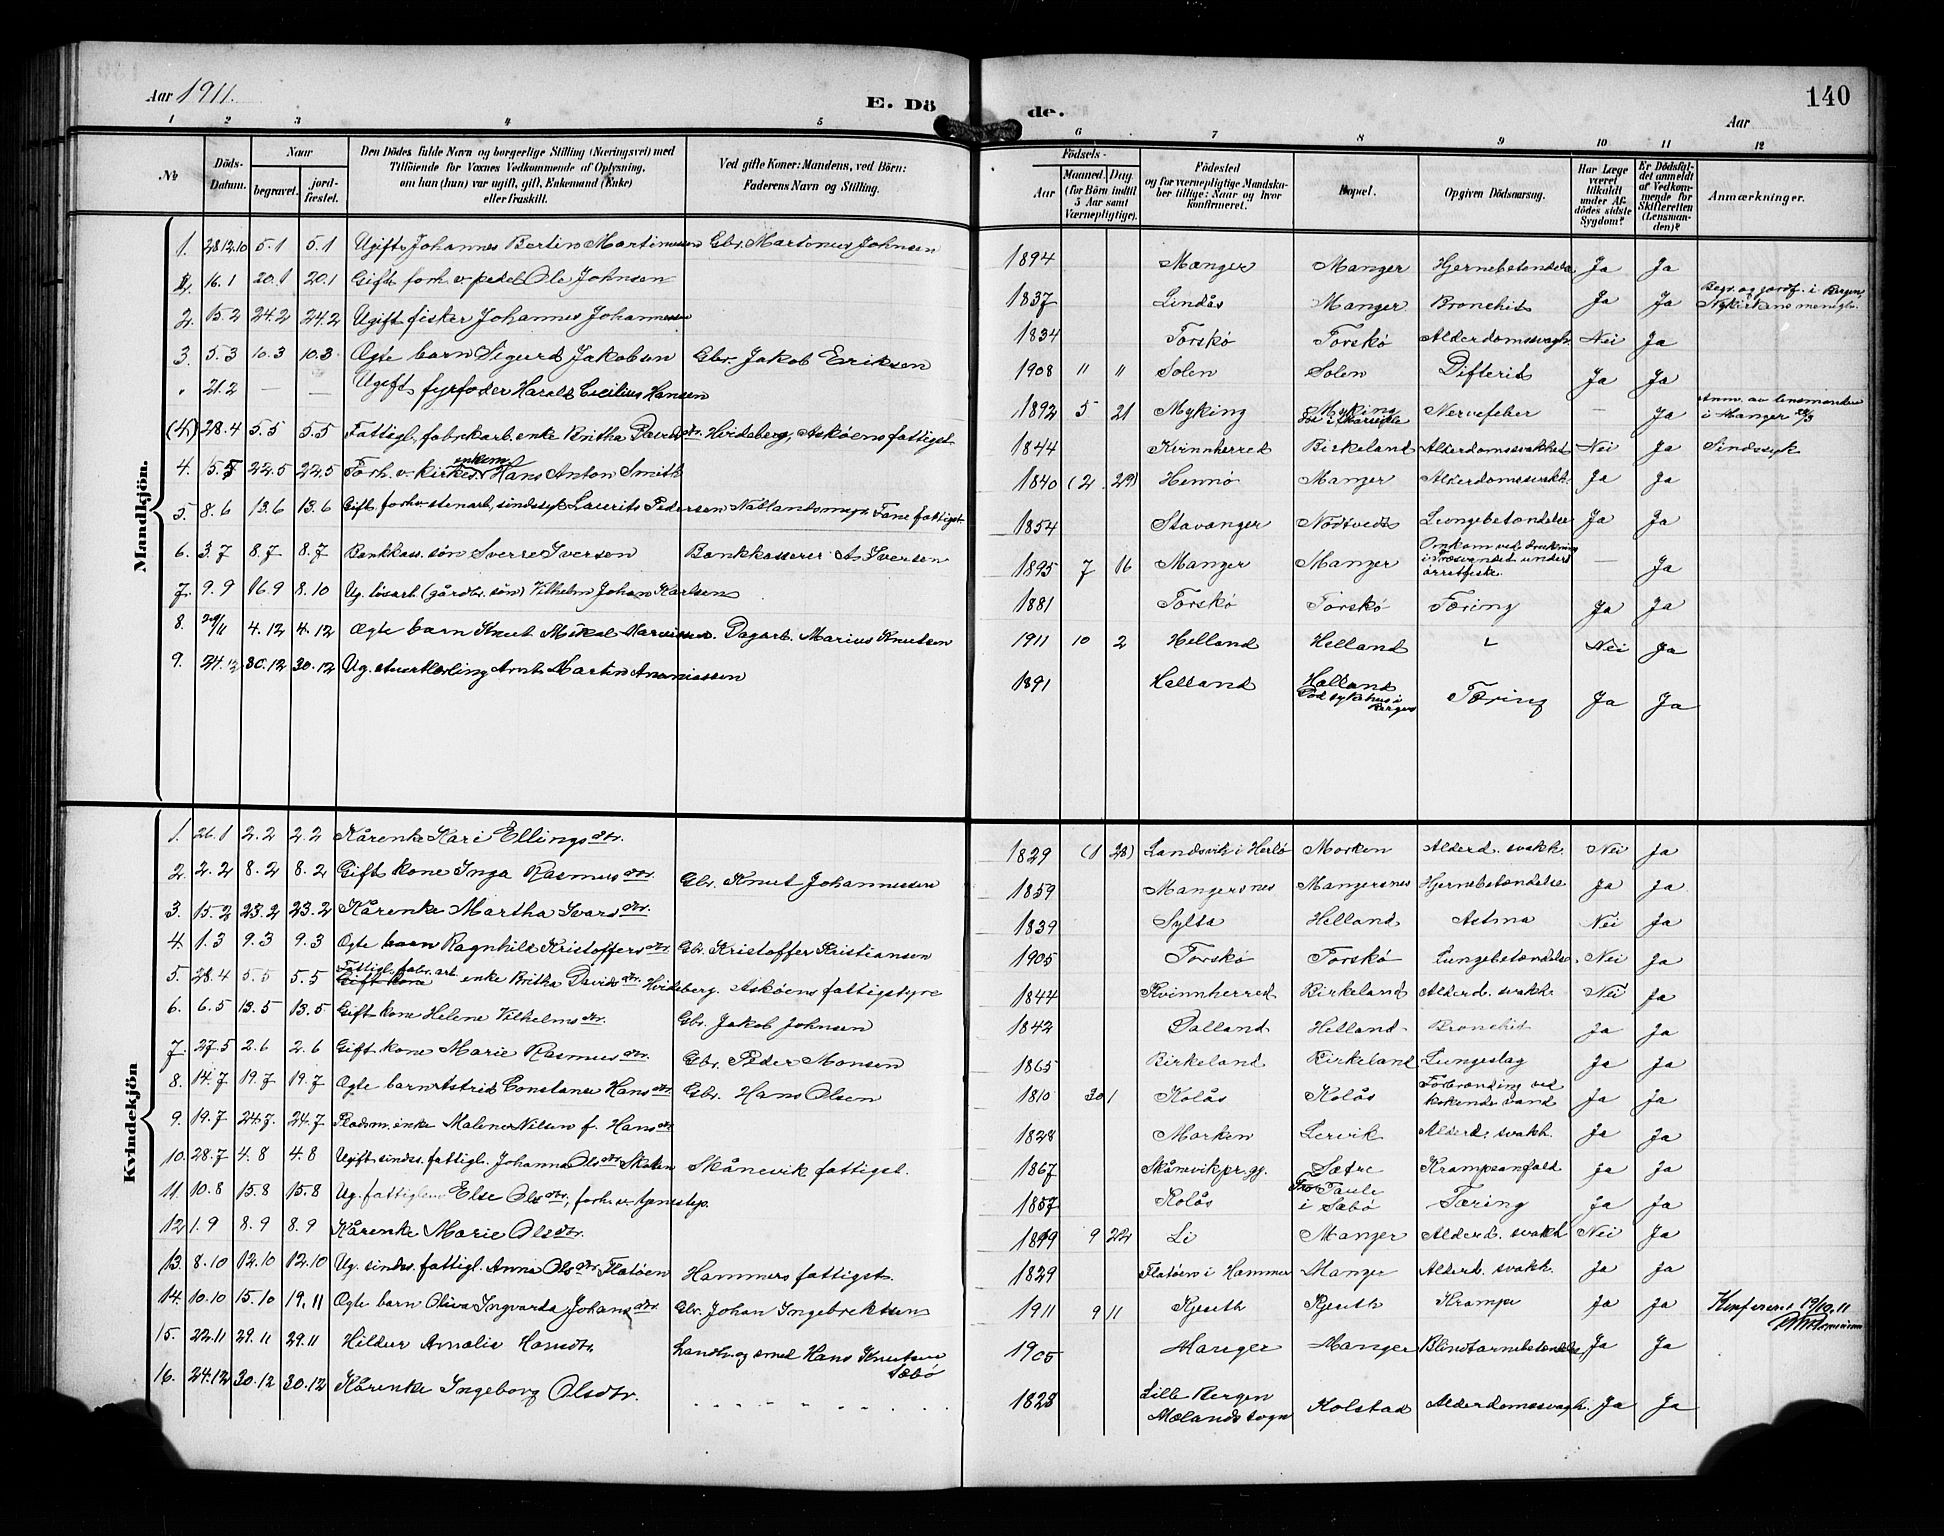 Aar 1911.
E. Dö
de.
140
Aar
1 2 3 4 5 6 7 8 9 10 11 12
No
Döds-Datum.
Naar
begravet.
jord-fæstet.
Den Dödes fulde Navn og borgerlige Stilling (Næringsvei) med
Tilföiende for Voxnes Vedkommende af Oplysning,
om han (hun) var ugift, gift, Enkemand (Enke)
eller fraskilt.
Ved gifte Koner: Mandens, ved Börn:
Faderens Navn og Stilling.
Födsels-
Aar
Maaned. Dag.
(for Börn indtil
5 Aar samt
Værnepligtige).
Födested
og for værnepligtige Mandska-
ber tillige: Naar og hvor
konfirmeret.
Bopæl.
Opgiven Dödsaarsag.
Har Læge
været
tilkaldt
under Af-
dödes sidste
Sygdom?
Er Dödsfal-
det anmeldt
af Vedkom-
mende for
Skifteretten
(Lensman-
den)?
Anmærkninger.
Mandkjön.
1. 28 12.10 5.1 5.1 Ugift Johannes Bertin Martinussen Gbr. Martonus Johnsen 1894 Manger Manger Hjernebetændelse Ja Ja
16.1 20.1 20.1 Gift forh. v. pedel Ole Johnsen 1837 Lindås Manger Bronchit Ja Ja Begr. og jordf. i Bergen, Nykirkens menigh.
2. 15.2 24.2 24.2 Ugift fisker Johannes Johannessen 1834 Torskø Torskø Alderdomssvagh. Nei Ja
3. 5.3 10.3 10.3 Ægte barn Sigurd Jakobsen Gbr. Jakob Eriksen 1908 " " Solen Solen Difterit Ja Ja
" 21.2 — — Ugift fyrbøder Harald Cecilius Hansen 1892 5 21 Myking Myking Nervefeber — Ja Anm. av lensmanden i Manger
(4) 28.4 5.5 5.5 Fattigl. fabrikarb. enke Britha Davidsdtr. Hvideberg, Askøens fattigst. 1844 Kvinnherred Birkeland Alderdomssvakhet Nei Ja Sindssyk
4. 5.5 22.5 22.5 Forh. v. kirkes. enkem. Hans Anton Smith 1840 (2 29) Hennø Manger Alderdomssvakh. Ja Ja
5. 8.6 13.6 13.6 Gift forhv. stenarb. sindssyk Laurits Pedersen Nattlandsmyr Fane fattigst. 1854 Stavanger Nødtvedt Lungebetændelse Ja Ja
6. 3.7 8.7 8.7 Bankkass. søn Sverre Iversen Bankkasserer A. Iversen 1895 7 16 Manger Manger Omkom ved drukning under ørretfiske. — Ja
7. 9.9 16.9 8.10 Ug. løsarb. (gårdbr. søn) Vilhelm Johan Karlsen 1881 Torskø Torskø Tæring Ja Ja
8. 29/11 4.12 4.12 Ægte barn Knut Mikal Mariussen. Dagarb. Marius Knutsen 1911 10 2 Helland Helland Nei Ja
9. 24.12 30.12 30.12 Ug. stuertlærling Arnt Martin Ananiassen 1891 Helland Helland Død sykehus i Bergen Tæring Ja Ja
Kvindekjön
1. 26.1 2.2 2.2 Kårenke Kari Ellingsdtr. 1829 (1 28) Landsvik i Herlø Morken Alderd. svakh. Nei Ja
2. 2.2 8.2 8.2 Gift kone Inga Rasmusdtr. Gbr. Knut Johannessen 1859 Mangersnes Mangersnes Hjernebetændelse Ja Ja
3. 15.2 23.2 23.2 Kårenke Martha Ivarsdtr. 1839 Sylta Helland Astma Nei Ja
4. 1.3 9.3 9.3 Ægte barn Ragnhild Kristoffersdtr. Gbr. Kristoffer Kristiansen 1905 Torskø Torskø Lungebetændelse. Nei Ja
5. 28.4 5.5 5.5 Fattigl. fabr. arb. Gift kone enke Britha Davidsdtr. Hvideberg. Askøens fattigstyre 1844 Kvinnherred Birkeland Alderd. svakh. Nei Ja
6. 6.5 13.5 13.5 Gift kone Helene Vilhelmsdtr. Gbr. Jakob Johnsen 1842 Dalland Helland Bronchit Ja Ja
7. 27.5 2.6 2.6 Gift kone Marie Rasmusdtr. Gbr. Peder Monsen 1865 Birkeland Birkeland Lungeslag Ja Ja
8. 14.7 19.7 19.7 Ægte barn Astrid Constance Hansdtr. Gbr. Hans Olsen 1810 30 1 Kolås Kolås Forbrænding ved kokende vand Ja Ja
9. 19.7 24.7. 24.7 Pladsm. enke Malene Nilsen f. Hansdtr. 1828 Morken Lervik Alderd. svakh. Ja Ja
10. 28.7 4.8 4.8 Ugift sindss. fattigl. Johanna Olsdtr. Skaten Skånevik fattigst. 1867 Skånevik pr. gj. Sætre Krampeanfald Ja Ja
11. 10.8 15.8 15.8 Ug. fattigl. Else Olsdtr., forh. v. tjenstep. 1857 Kolås Taule i Sæbø Tæring Ja Ja
12 1.9 8.9 8.9 Kårenke Marie Olsdtr. 1819 9 22 Li Manger Alderd. svakh. Nei Ja
13. 8.10 12.10 12.10 Ug. sindss. fattigl. Anna Olsdtr. Flatøen Hammers fattigst. 1829 Flatøen i Hammer Manger Alderd. svakh. Ja Ja
14. 10.10 15.10 19.11 Ægte barn Oliva Ingvarda Johansdtr. Gbr. Johan Ingebrektsen 1911 9 11 Kjenth Kjenth Krampe Ja Ja 19/10.11
15. 22.11 29.11 29.11 Hildur Amalie Hansdtr. Landh. og smed Hans Knutsen Sæbø 1905 Manger Manger Blindtarmbetændelse Ja Ja
16. 24.12 30.12 30.12 Kårenke Ingeborg Olsdtr. 1828 Lille Bergen Mælands sogn Kolstad Alderdomssvagh. Ja Ja